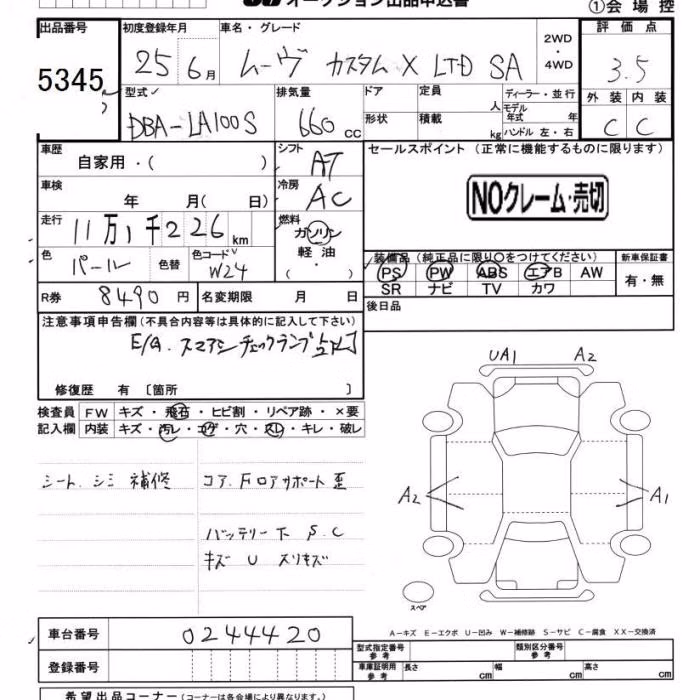 オークション出品申込書
①会場控
出品番号 初度登録年月 車名・グレード 2WD ・ 4WD 評価点
5345 25 6月 ムーヴ カスタム X LTD SA 3.5
型式 排気量 ドア 定員 人 ディーラー・並行 外装 内装
DBA-LA100S 660 cc 形状 積載 kg モデル年式 年 ハンドル 左・右 C C
車歴 自家用・( ) シフト AT セールスポイント (正常に機能するものに限ります)
車検 年 月( 日) 冷房 AC NOクレーム・売切
走行 11万1千226km 燃料 ガソリン
色 パール 色替 色コード W24 軽油・( )
装備品(純正品に限り○をつけてください) 新車保証書
PS PW ABS エアB AW 有・無
SR ナビ TV カワ
R券 8490円 名変期限 月 日 後日品
注意事項申告欄(不具合内容等は具体的に記入して下さい)
E/G. チェックランプ
修復歴 有 〔箇所 〕
UA1 A2
検査員 FW キズ・飛石・ヒビ割・リペア跡・×要
記入欄 内装 キズ・汚レ・コゲ・穴・スレ・キレ・破レ
シート.シミ 補修 コア.Fロアサポート 歪
A2 A1
バッテリー下 S.C
キズ U スリキズ
スペア
車台番号 0244420
A-キズ E-エクボ U-凹み W-補修跡 S-サビ C-腐食 XX-交換済
登録番号 型式指定番号 参考 類別区分番号 参考
車庫証明用 参考 長さ cm 幅 cm 高さ cm
希望出品コーナー(コーナーは各会場により異なります。)